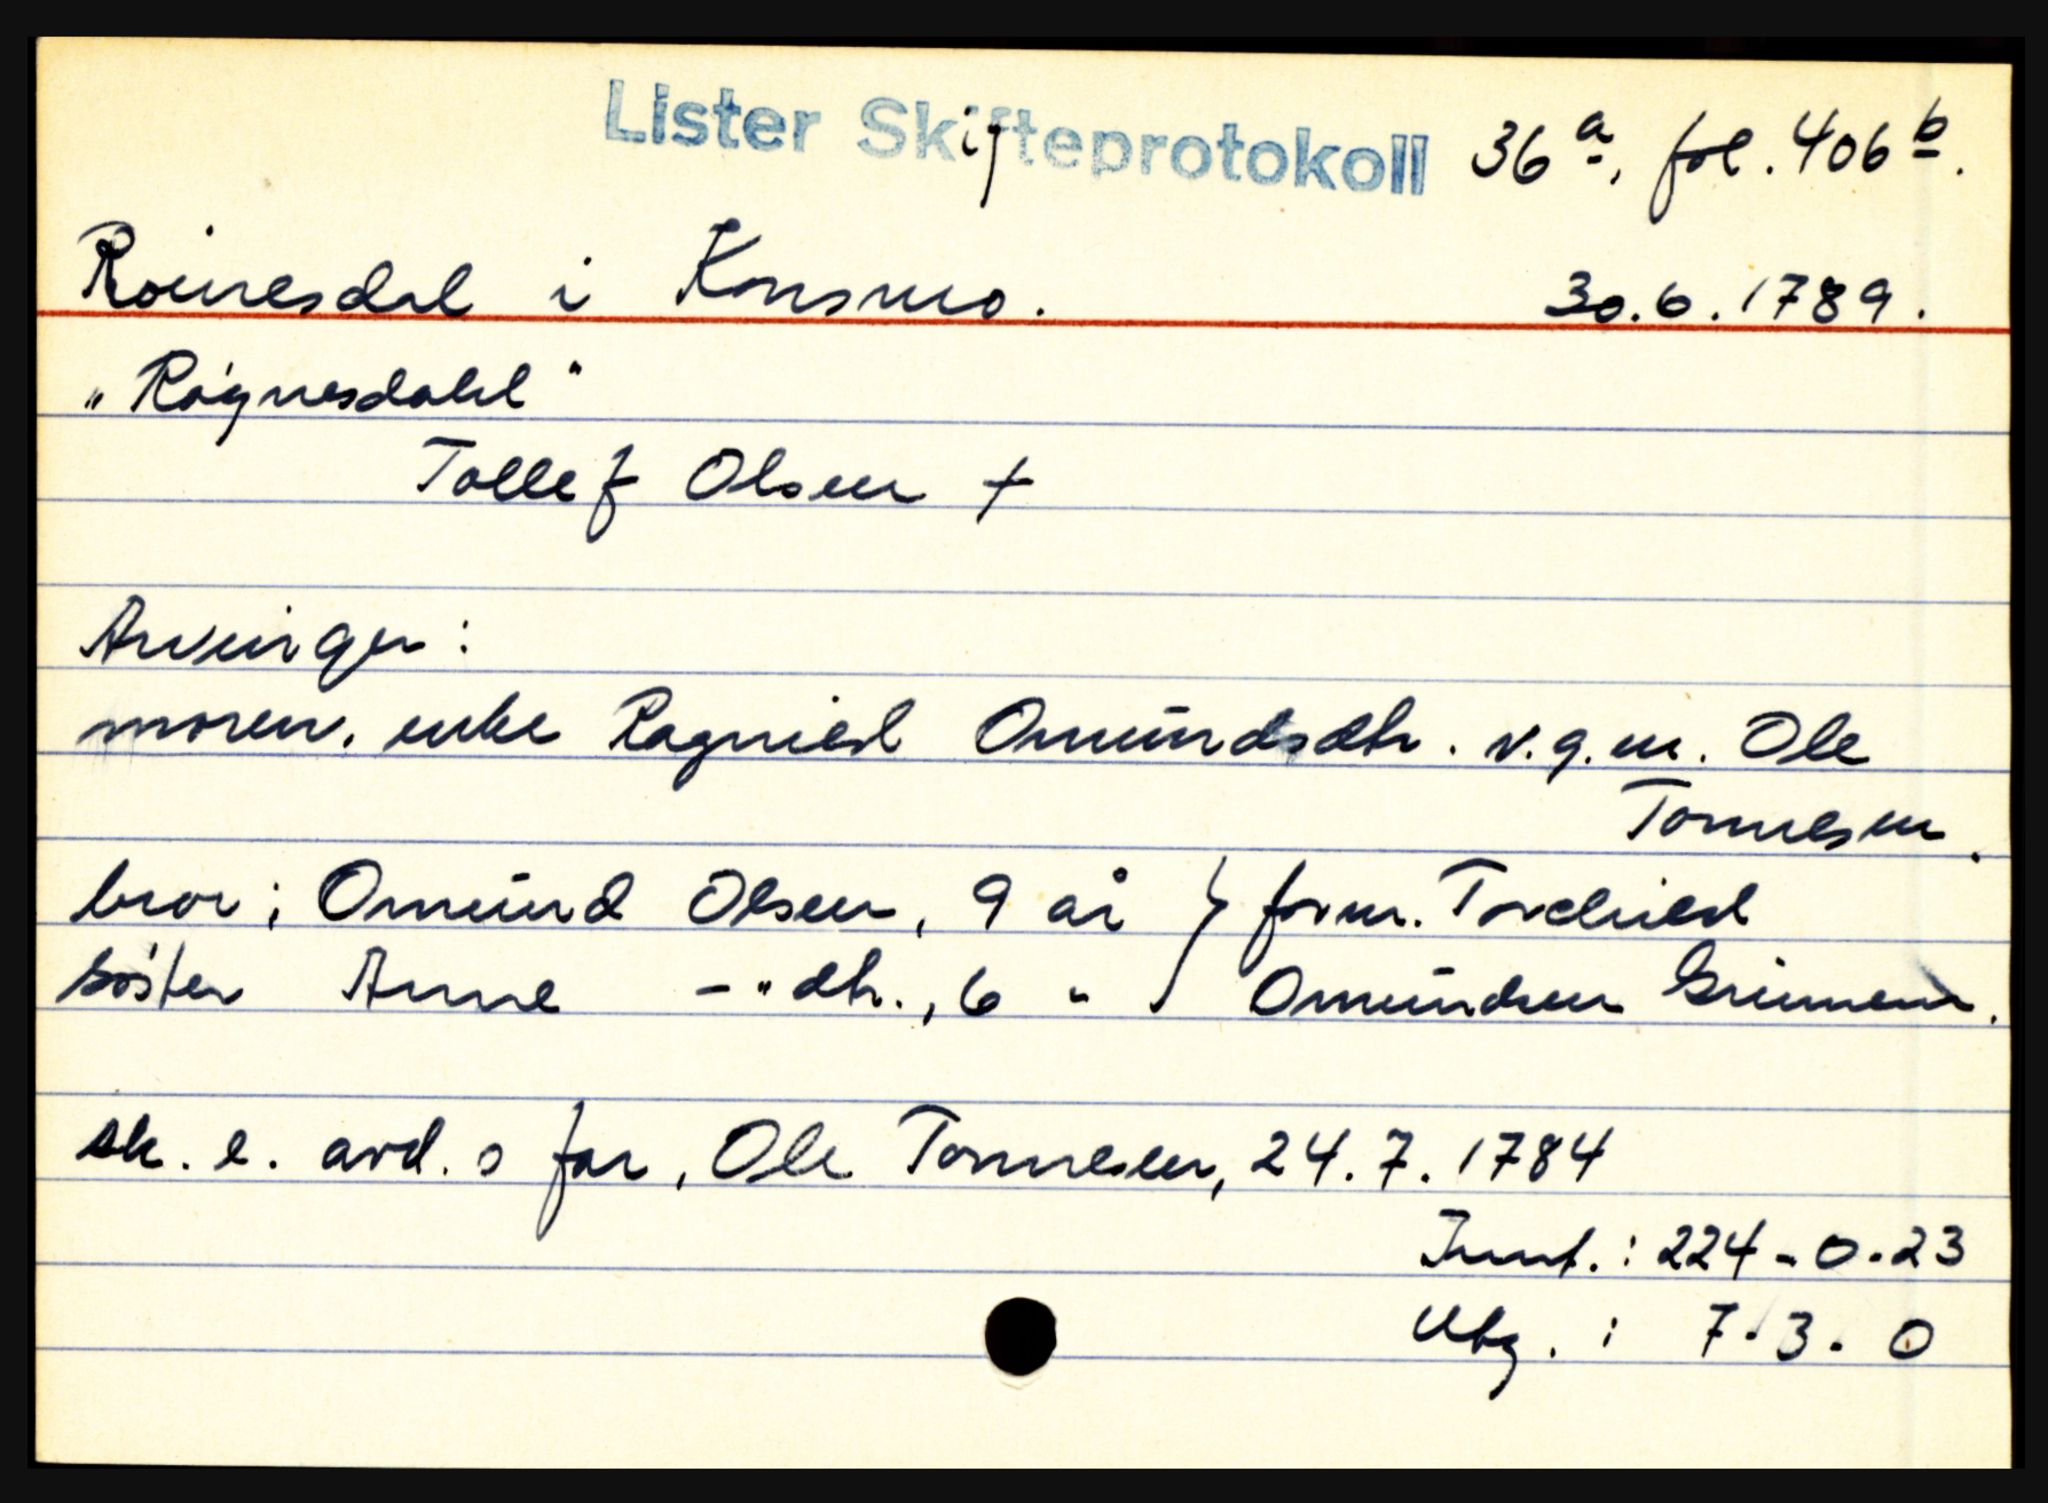 Lister Skifteprotokoll 36 a, fol. 406 b.
Roinesdal i Konsmo. 30.6.1789.
"Røgnesdahl"
Tollef Olsen +
Arvinger:
moren, enke Ragnild Omŭndsdtr. v.g.m. Ole
Tønnesen.
bror: Omŭnd Olsen, 9 år } form. Torchild
søster Anne -"- dtr., 6 " } Omŭndsen Grimnem.
sk. e. avd. s far, Ole Tønnesen, 24.7.1784
Innt.: 224-0-23
Utg.: 7-3-0